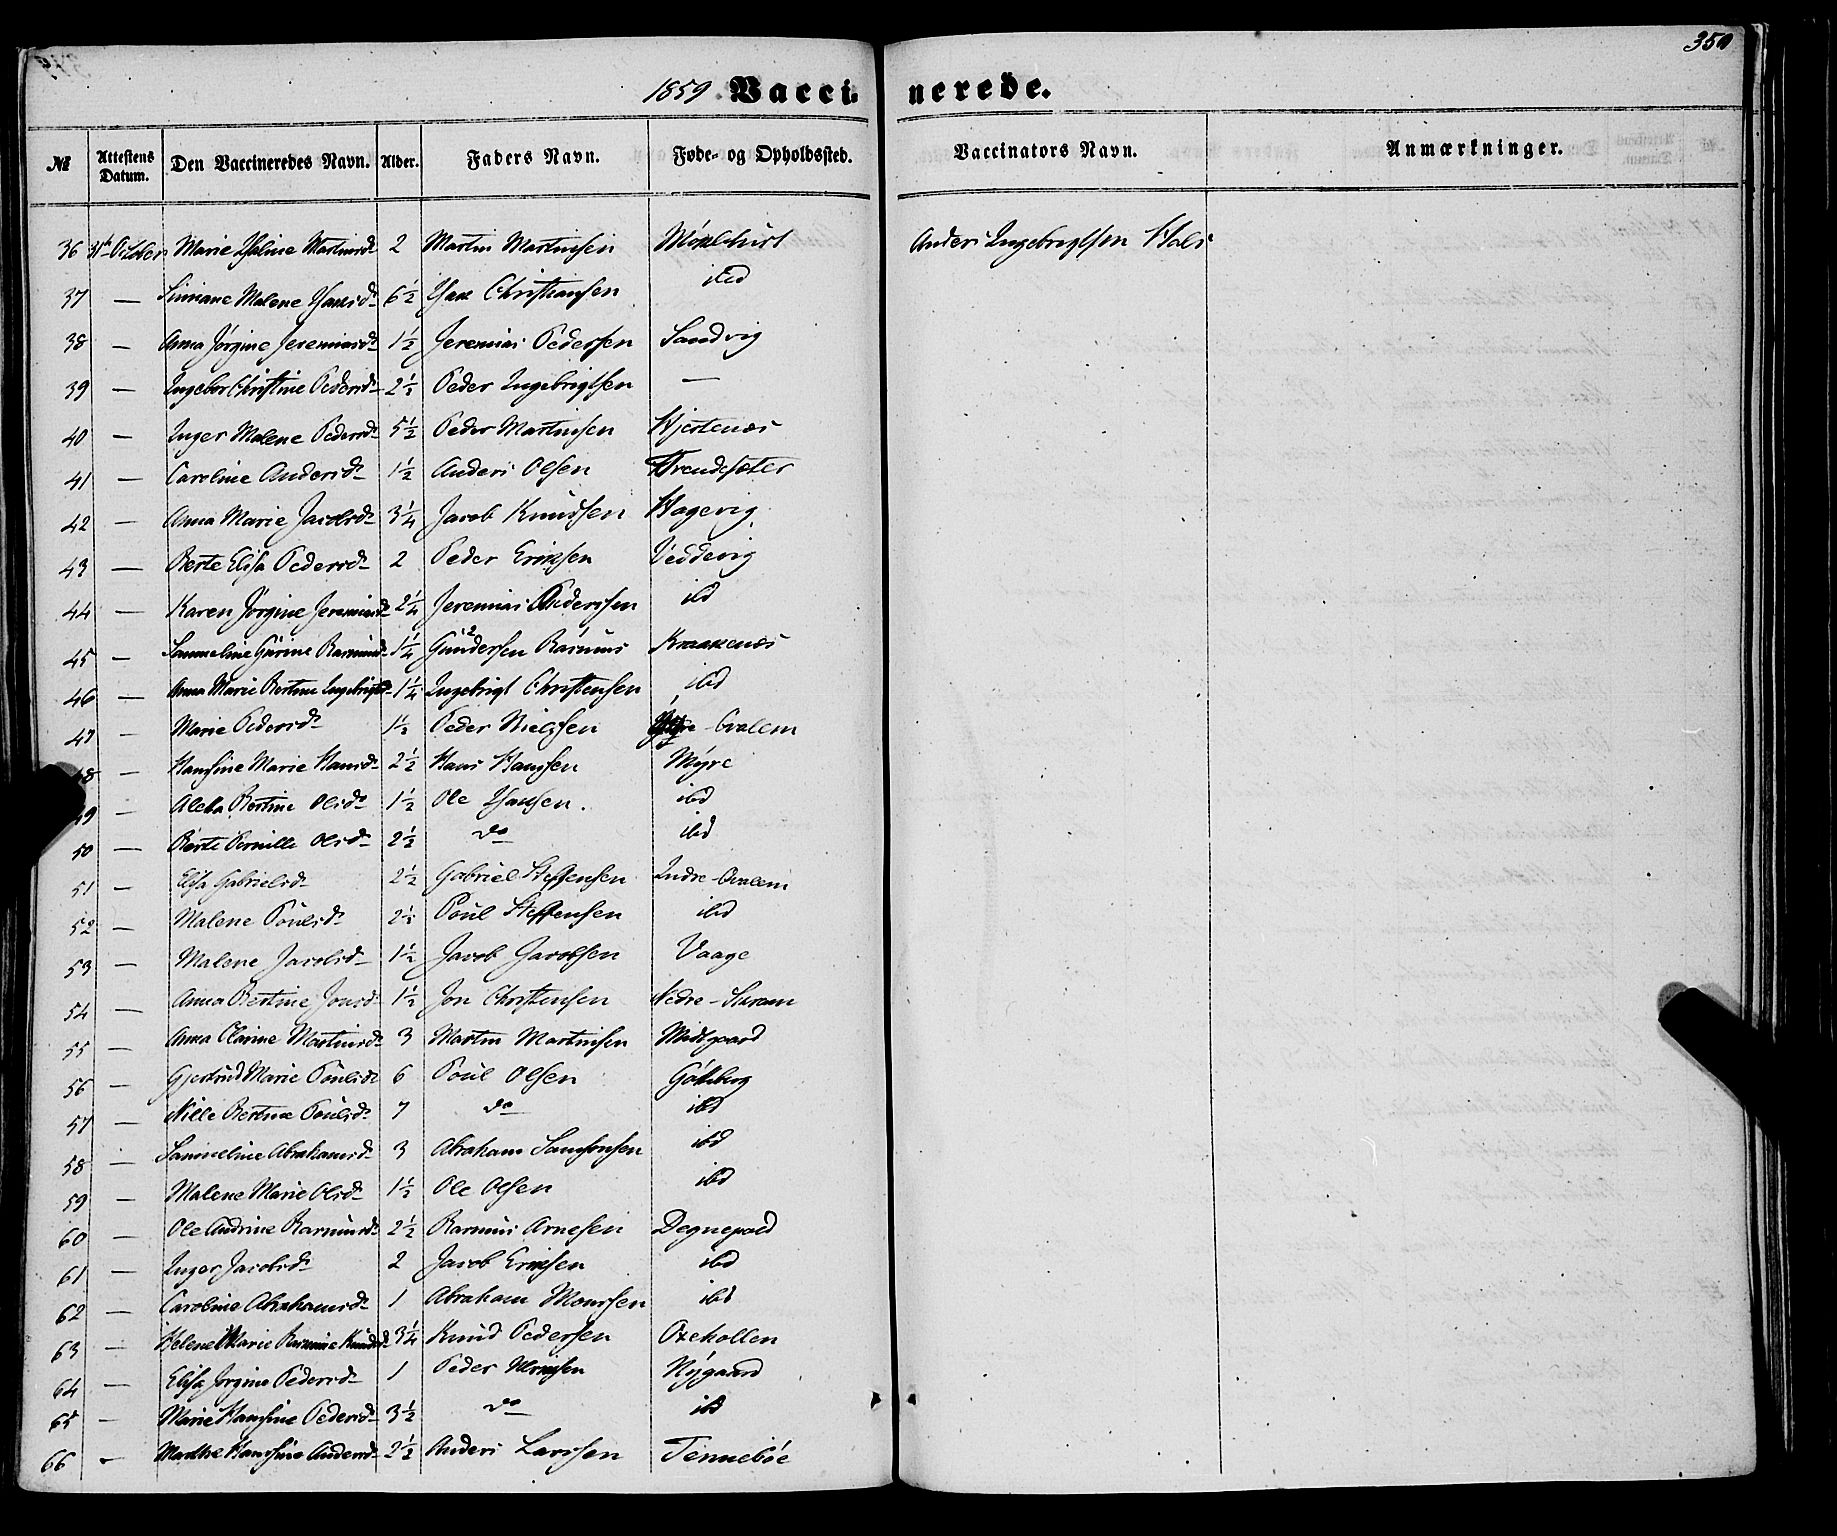 350
1859 Vaccinerede.
№ Attestens Datum. Den Vaccineredes Navn. Alder. Faders Navn. Føde- og Opholdssted. Vaccinators Navn. Anmærkninger.
36 31te October Marie Martinsd. 2 Martin Martinsen Anders Ingebrigtsen Hals
37 — Malene 6½ Christiansen ibd
38 — Anna Jørgine Jeremiasd. 1½ Jeremias Pedersen Sandvig
39 — Ingebor Christine Pedersd. 2½ Peder Ingebrigtsen —
40 — Inger Malene Pedersd. 5½ Peder Martinsen Hjertenæs
41 — Caroline Andersd. 1½ Anders Olsen
42 — Anna Marie Jacobsd. 3¼ Jacob Knudsen Hagevig
43 — Berte Elisa Pedersd. 2 Peder Eriksen Veddevig
44 — Karen Jørgine Jeremiasd. 2¼ Jeremias Pedersen ibd
45 — Sammeline Gurine Rasmusd. 1¼ Gundersen Rasmus Kraakenæs
46 — Anna Marie Bertine Ingebrigtsd. 1¼ Ingebrigt Christensen ibd
47 — Marie Pedersd. 1½ Peder Nielssen Ytre-Qvalem
48 — Hansine Marie Hansd. 2½ Hans Hanssen Myre
49 — Aletta Bertine Olsd. 1½ Ole Hansen. ibd
50 — Berte Pernille Olsd. 2½ do ibd
51 — Elisa Gabrielsd. 2½ Gabriel Steffensen Indre-Qvalem
52 — Malene Poulsd. 2½ Poul Steffensen ibd
53 — Malene Jacobsd. 1½ Jacob Jacobsen Vaage
54 — Anna Bertine Jonsd. 1½ Jon Christensen Nedre-
55 — Anna Olarine Martinsd. 3 Martin Martinsen Midtgaard
56 — Gjertrud Marie Poulsd. 6 Poul Olsen Gotteberg
57 — Nille Bertine Poulsd. 7 do ibd
58 — Sammeline Abrahamsd. 3 Abraham Samsonsen ibd
59 — Malene Marie Olsd. 1½ Ole Olsen ibd
60 — Ole Andrine Rasmusd. 2½ Rasmus Arnesen Degnepold
61 — Inger Jacobsd. 2 Jacob Eriksen ibd
62 — Caroline Abrahamsd. 1 Abraham Monssen ibd
63 — Helene Marie Rasmine Knudsd. 3¼ Knud Pedersen Oxehollen
64 — Elisa Jørgine Pedersd. 1 Peder Nygaard
65 — Marie Hansine Pedersd. 3½ do ibd
66 — Marthe Hanssine Andersd. 2½ Anders Larssen Tennebøe